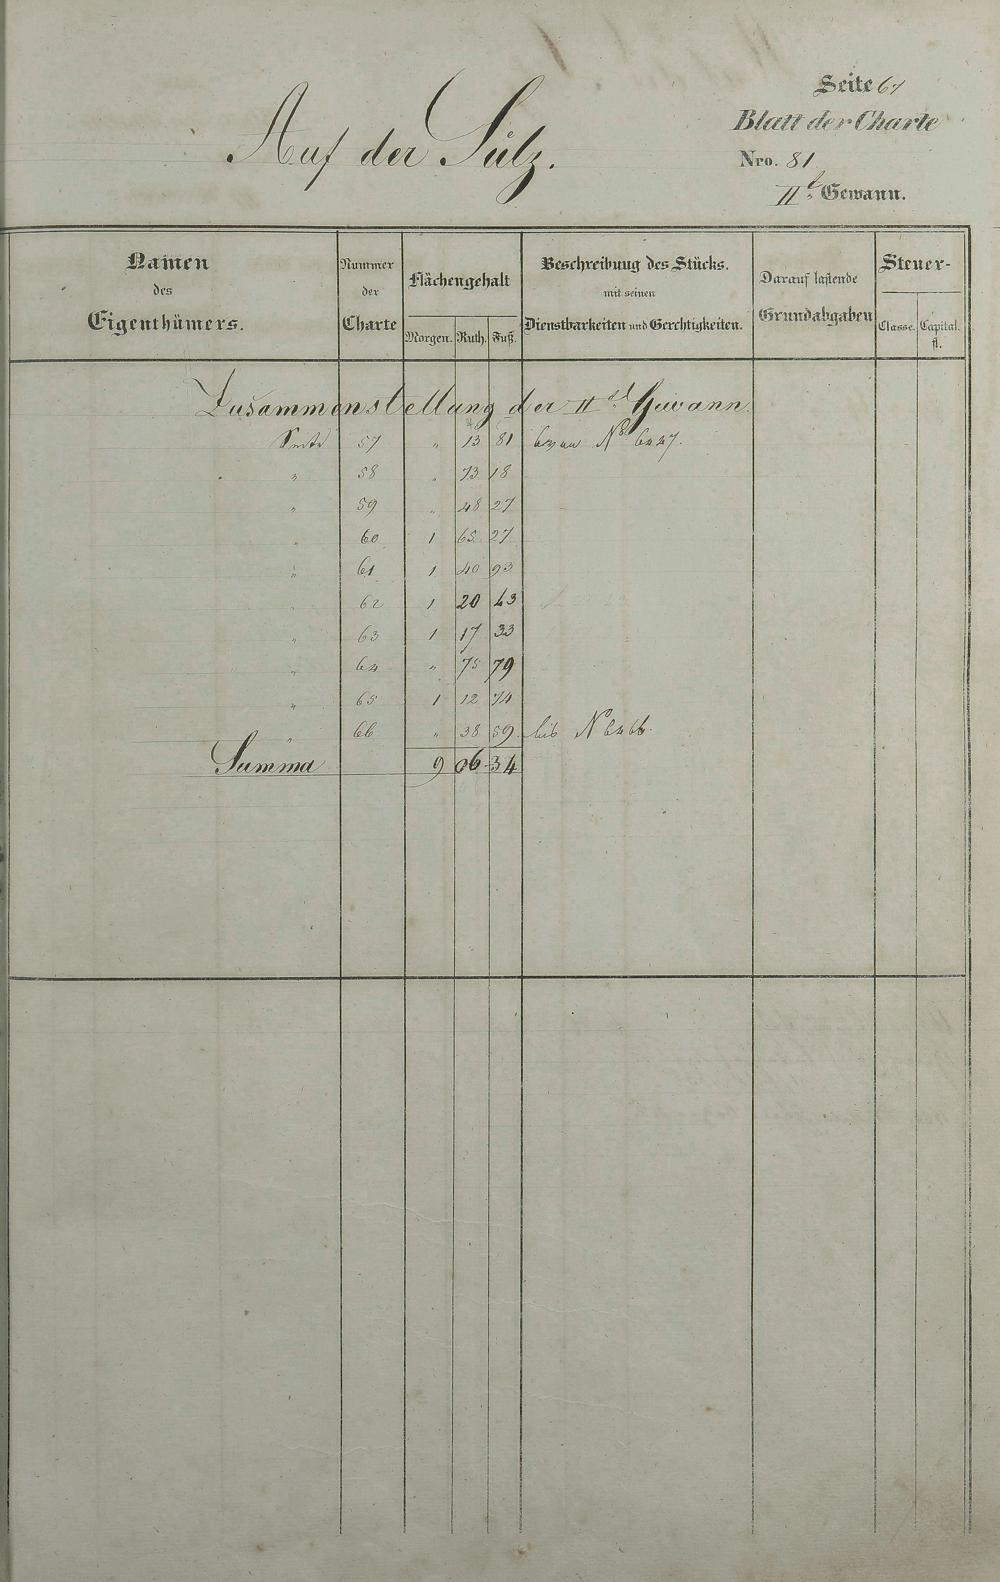 Seite 67
Blatt der Charte
Auf der Sülz.
Nro. 81
IIt. Gewann.
Namen des Eigenthümers.
Nummer der Charte
Flächengehalt
Morgen. Ruth. Fuß.
Beschreibung des Stücks.
mit seinen
Dienstbarkeiten und Gerechtigkeiten.
Darauf lastende
Grundabgaben
Steuer-
Classe. Capital. fl.
Zusammenstellung der IIt. Gewann.
Seite 57 " 13 81 No 6447.
" 58 " 73 18
" 59 " 48 27
" 60 1 65 27
" 61 1 40 93
" 62 1 20 43
" 63 1 17 33
" 64 " 75 79
" 65 1 12 74
" 66 " 38 59 bis No 6466.
Summa 9 06 34